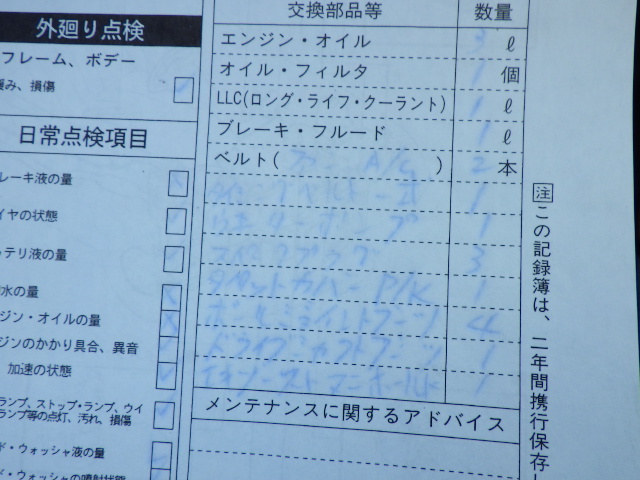 交換部品等 数量
外廻り点検
エンジン・オイル 3 ℓ
フレーム、ボデー
オイル・フィルタ 1 個
緩み、損傷
LLC(ロング・ライフ・クーラント) 1 ℓ
ブレーキ・フルード 1 ℓ
日常点検項目
ベルト(ファン A/C) 2 本
レーキ液の量
タイミングベルト一式 1
イヤの状態
ウォーターポンプ 1
テリ液の量
スパークプラグ 3
水の量
タペットカバー P/K 1
ジン・オイルの量
ボールジョイントブーツ 4
ジンのかかり具合、異音
ドライブシャフトブーツ 1
加速の状態
エキゾーストマニホールド 1
ランプ、ストップ・ランプ、ウイ
ランプ等の点灯、汚れ、損傷
メンテナンスに関するアドバイス
ド・ウォッシャ液の量
ド・ウォッシャの噴射状態
注 この記録簿は、二年間携行保存し